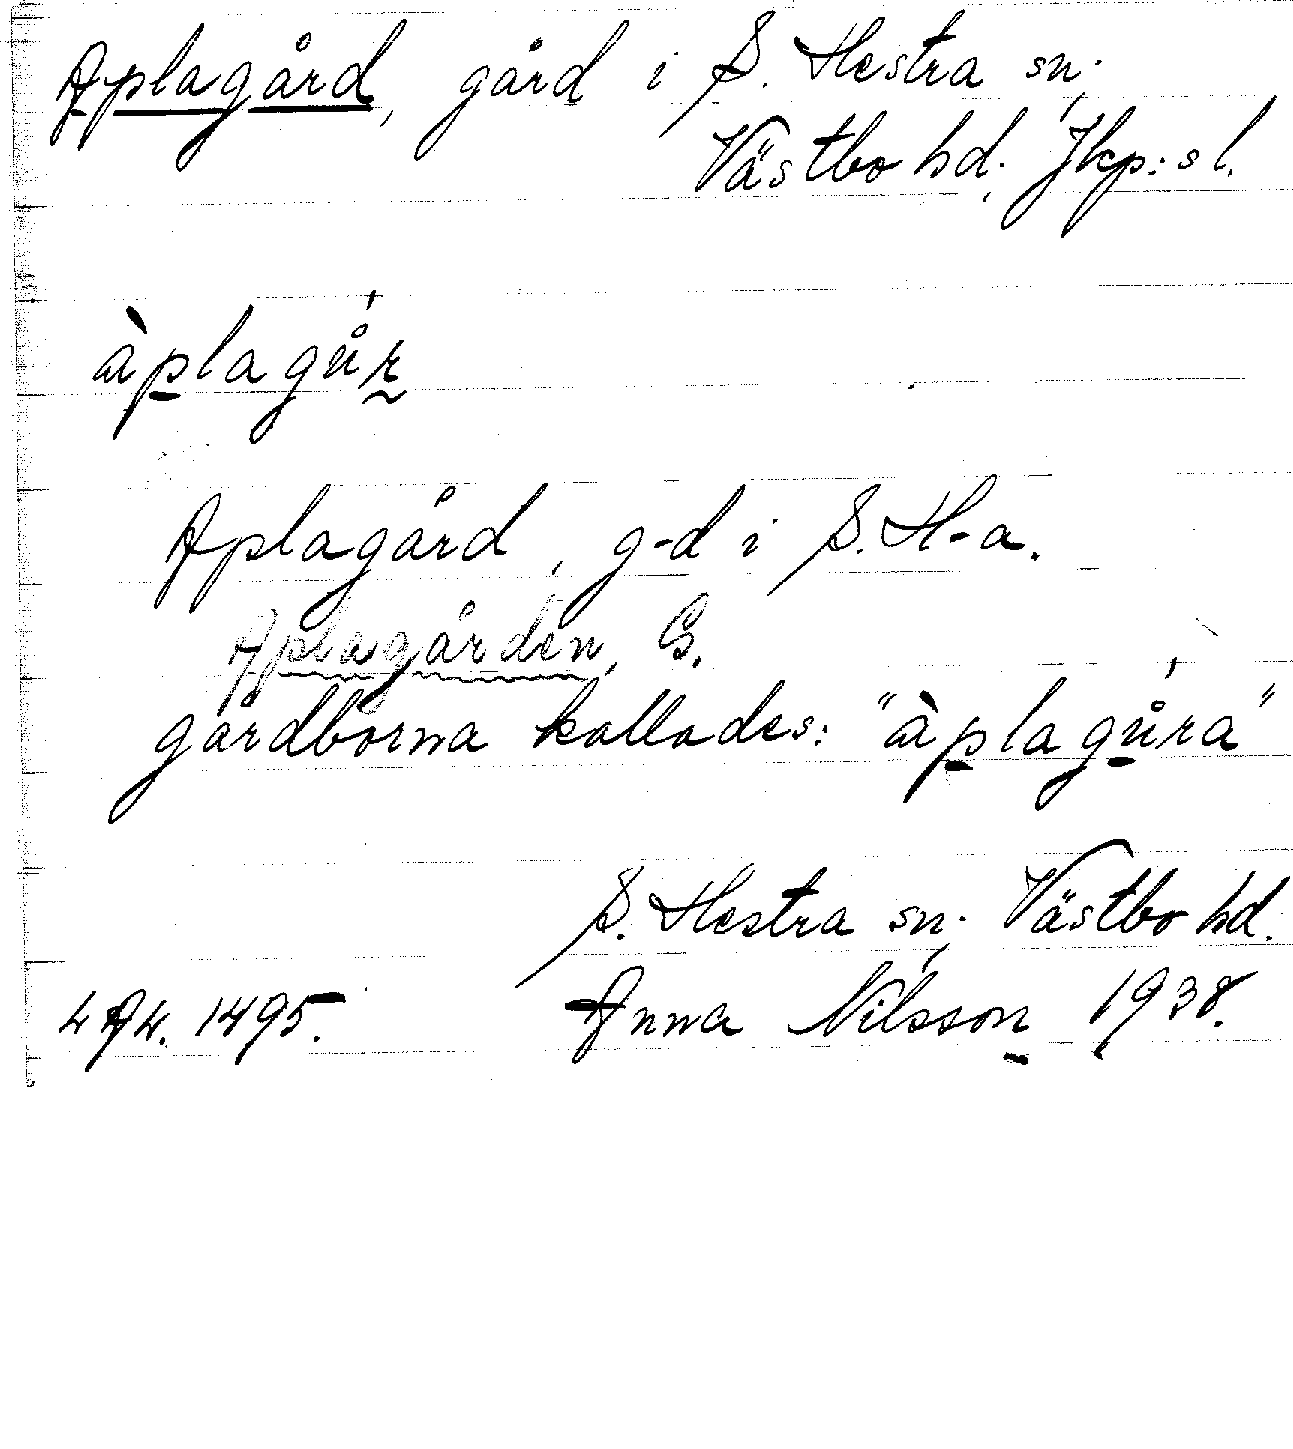 Aplagård, gård i S. Hestra sn.
Västbo hd. Jkp:s l.
àplagůr
Aplagård, g-d i S. H-a.
Aplagården, G.
gårdborna kallades: "àplagůra"
S. Hestra sn. Västbo hd.
Anna Nilsson 1938.
1495.